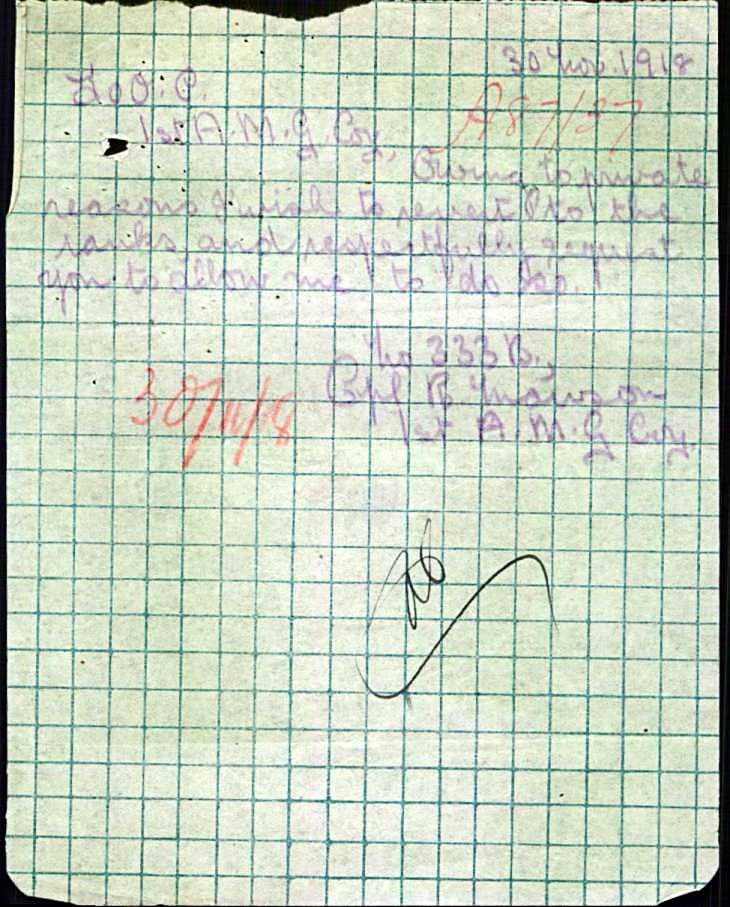 30 Nov. 1918
To O.C.
1st A.M.G. Coy.
A87/37
Owing to private
reasons I wish to revert to the
ranks and respectfully request
you to allow me to do so.
No 333 B.,
Cpl B. Mawson
1st A.M.G Coy.
30/11/18